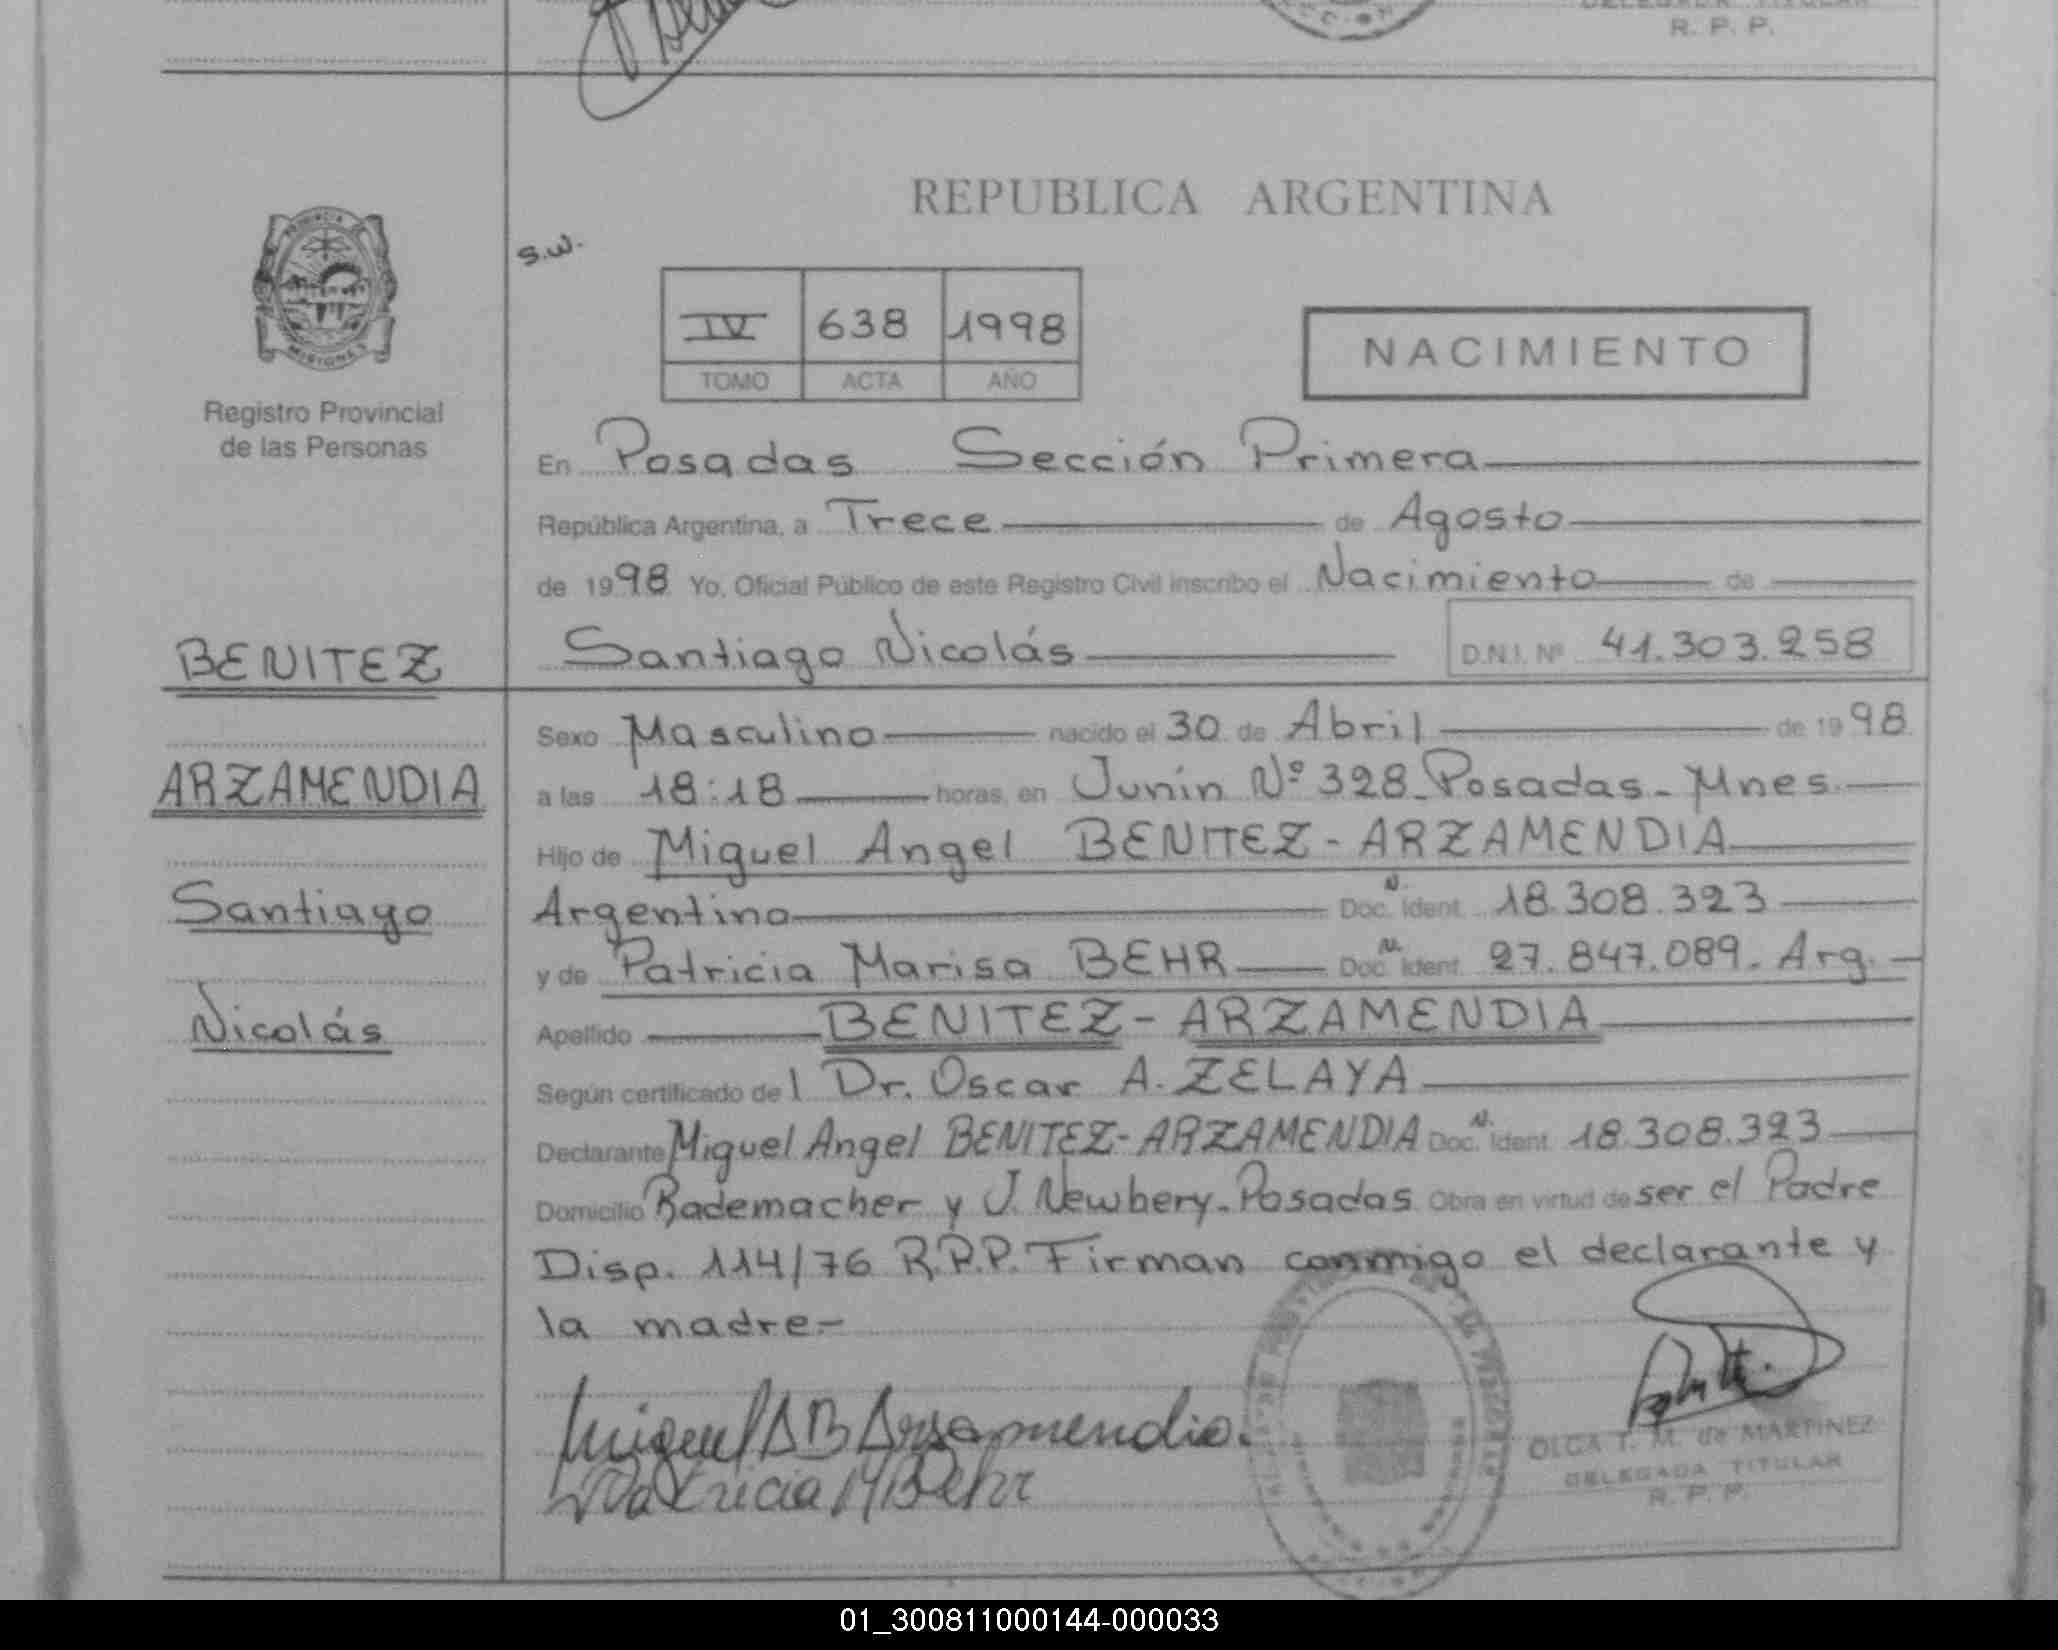 DELEGADA TITULAR
R. P. P.
REPUBLICA ARGENTINA
s.w.
IV 638 1998
TOMO ACTA AÑO
NACIMIENTO
PROVINCIA DE
MISIONES
Registro Provincial
de las Personas
En Posadas Sección Primera
República Argentina, a Trece de Agosto
de 1998 Yo, Oficial Público de este Registro Civil inscribo el Nacimiento de
Santiago Nicolás D.N.I. Nº 41.303.258
BENITEZ
ARZAMENDIA
Santiago
Nicolás
Sexo Masculino nacido el 30 de Abril de 1998
a las 18:18 horas, en Junín Nº 328 - Posadas - Mnes
Hijo de Miguel Angel BENITEZ - ARZAMENDIA
Argentino Doc. N. Ident. 18.308.323
y de Patricia Marisa BEHR Doc. N. Ident. 27.847.089. Arg.
Apellido BENITEZ - ARZAMENDIA
Según certificado del Dr. Oscar A. ZELAYA
Declarante Miguel Angel BENITEZ - ARZAMENDIA Doc. N. Ident. 18.308.323
Domicilio Rademacher y J. Newbery - Posadas Obra en virtud de ser el Padre
Disp. 114/76 R.P.P. Firman conmigo el declarante y
la madre.-
Miguel A B Arzamendia.
Patricia M Behr
OLGA T. M. de MARTINEZ
DELEGADA TITULAR
R. P. P.
01_300811000144-000033